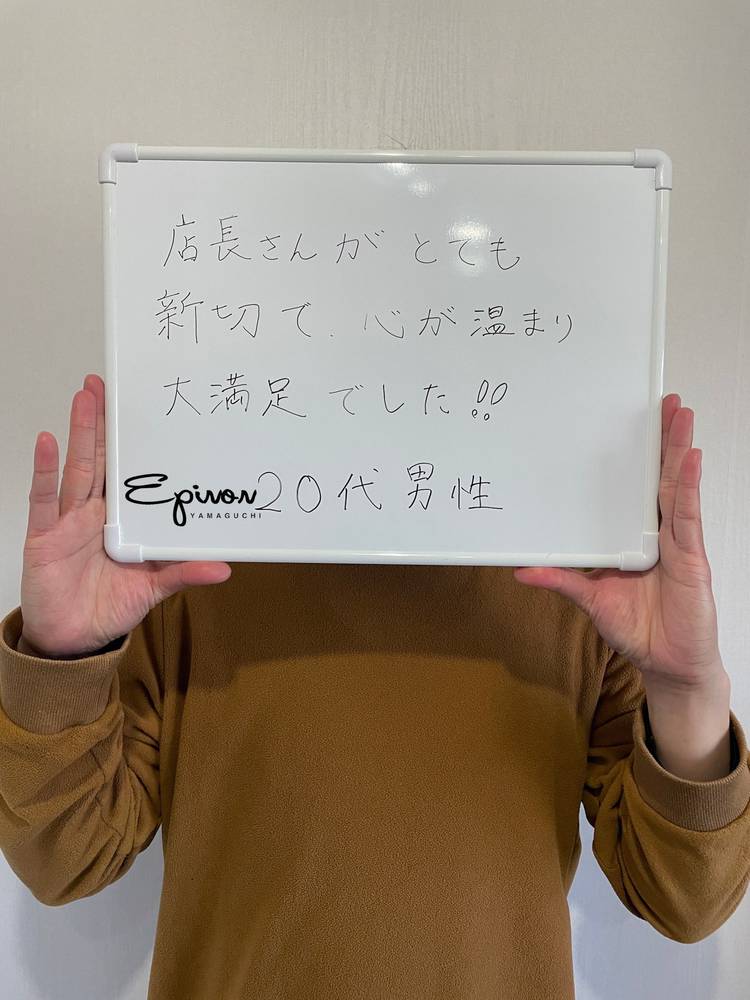 店長さんがとても
新切で、心が温まり
大満足でした!!
Epinon
YAMAGUCHI
20代男性